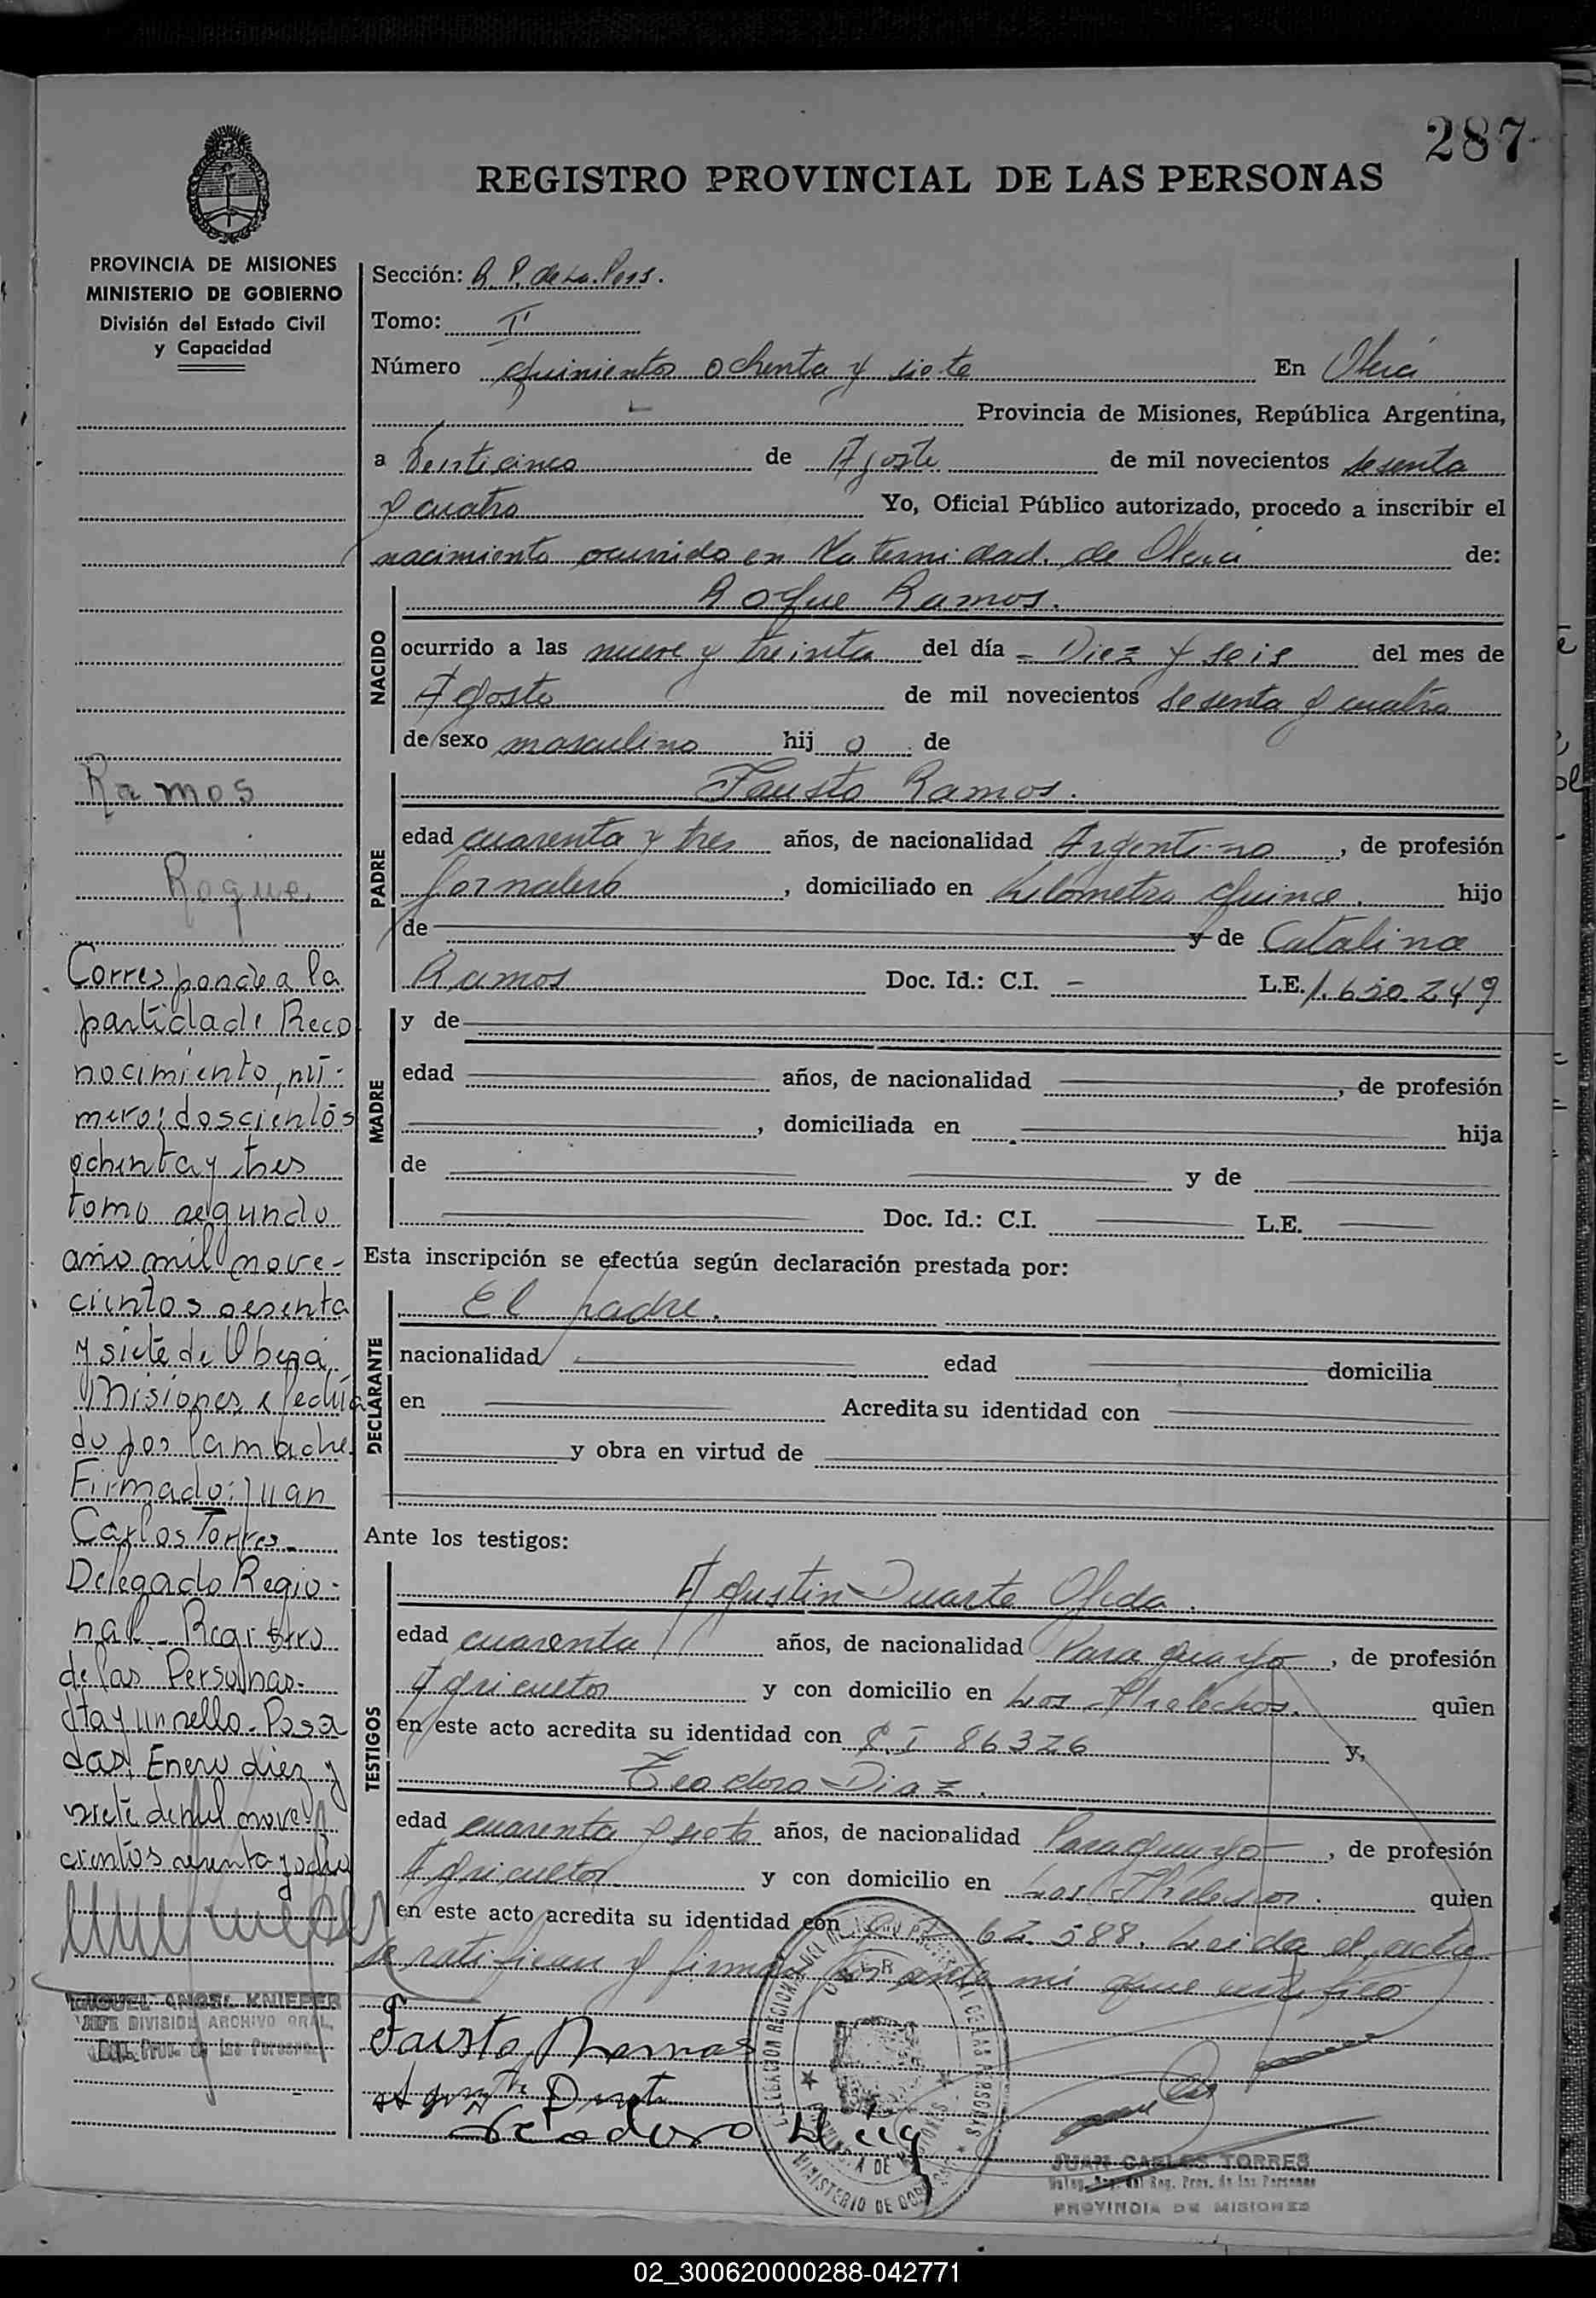 287
REGISTRO PROVINCIAL DE LAS PERSONAS
PROVINCIA DE MISIONES
MINISTERIO DE GOBIERNO
División del Estado Civil
y Capacidad
Ramos
Roque
Corresponde a la
partida de Reco
nocimiento, nú-
mero: doscientos
ochenta y tres
tomo segundo
año mil nove-
cientos sesenta
y siete de Oberá
Misiones efectua
do por la madre.
Firmado: Juan
Carlos Torres.
Delegado Regio-
nal - Registro
de las Personas.
Hay un sello. Posa
das, Enero diez y
siete de mil nove
cientos sesenta y ocho
MIGUEL ANGEL KNIEFER
JEFE DIVISION ARCHIVO GRAL.
Prov. de las Personas
Sección: R. P. de La. Pers.
Tomo: I
Número quinientos ochenta y siete En Oberá
Provincia de Misiones, República Argentina,
a Veinticinco de Agosto de mil novecientos sesenta
y cuatro Yo, Oficial Público autorizado, procedo a inscribir el
nacimiento ocurrido en Maternidad de Oberá de:
NACIDO
Roque Ramos.
ocurrido a las nueve y treinta del día - Diez y seis del mes de
Agosto de mil novecientos sesenta y cuatro
de sexo masculino hij o de
PADRE
Fausto Ramos.
edad cuarenta y tres años, de nacionalidad Argentino, de profesión
Jornalero, domiciliado en Kilómetro quince. hijo
de y de Catalina
Ramos Doc. Id.: C.I. - L.E. 1.650.249
MADRE
y de
edad años, de nacionalidad , de profesión
, domiciliada en hija
de y de
Doc. Id.: C.I. L.E.
Esta inscripción se efectúa según declaración prestada por:
DECLARANTE
El padre.
nacionalidad edad domicilia
en Acredita su identidad con
y obra en virtud de
Ante los testigos:
TESTIGOS
Agustin Duarte Ojeda.
edad cuarenta años, de nacionalidad Paraguayo, de profesión
Agricultor y con domicilio en Los Helechos. quien
en este acto acredita su identidad con C I 86326 y,
Teodoro Diaz.
edad cuarenta y siete años, de nacionalidad Paraguayo, de profesión
Agricultor y con domicilio en Los Helechos. quien
en este acto acredita su identidad con 62.588. Leida el acta
se ratifican y firman por ante mi que certifico
Fausto Ramos
Teodoro Diaz
DELEGACION REGIONAL DEL REGISTRO PROVINCIAL DE LAS PERSONAS
OBERA
PROVINCIA DE MISIONES
MINISTERIO DE GOBIERNO
JUAN CARLOS TORRES
Deleg. Reg. del Reg. Prov. de las Personas
PROVINCIA DE MISIONES
02_300620000288-042771